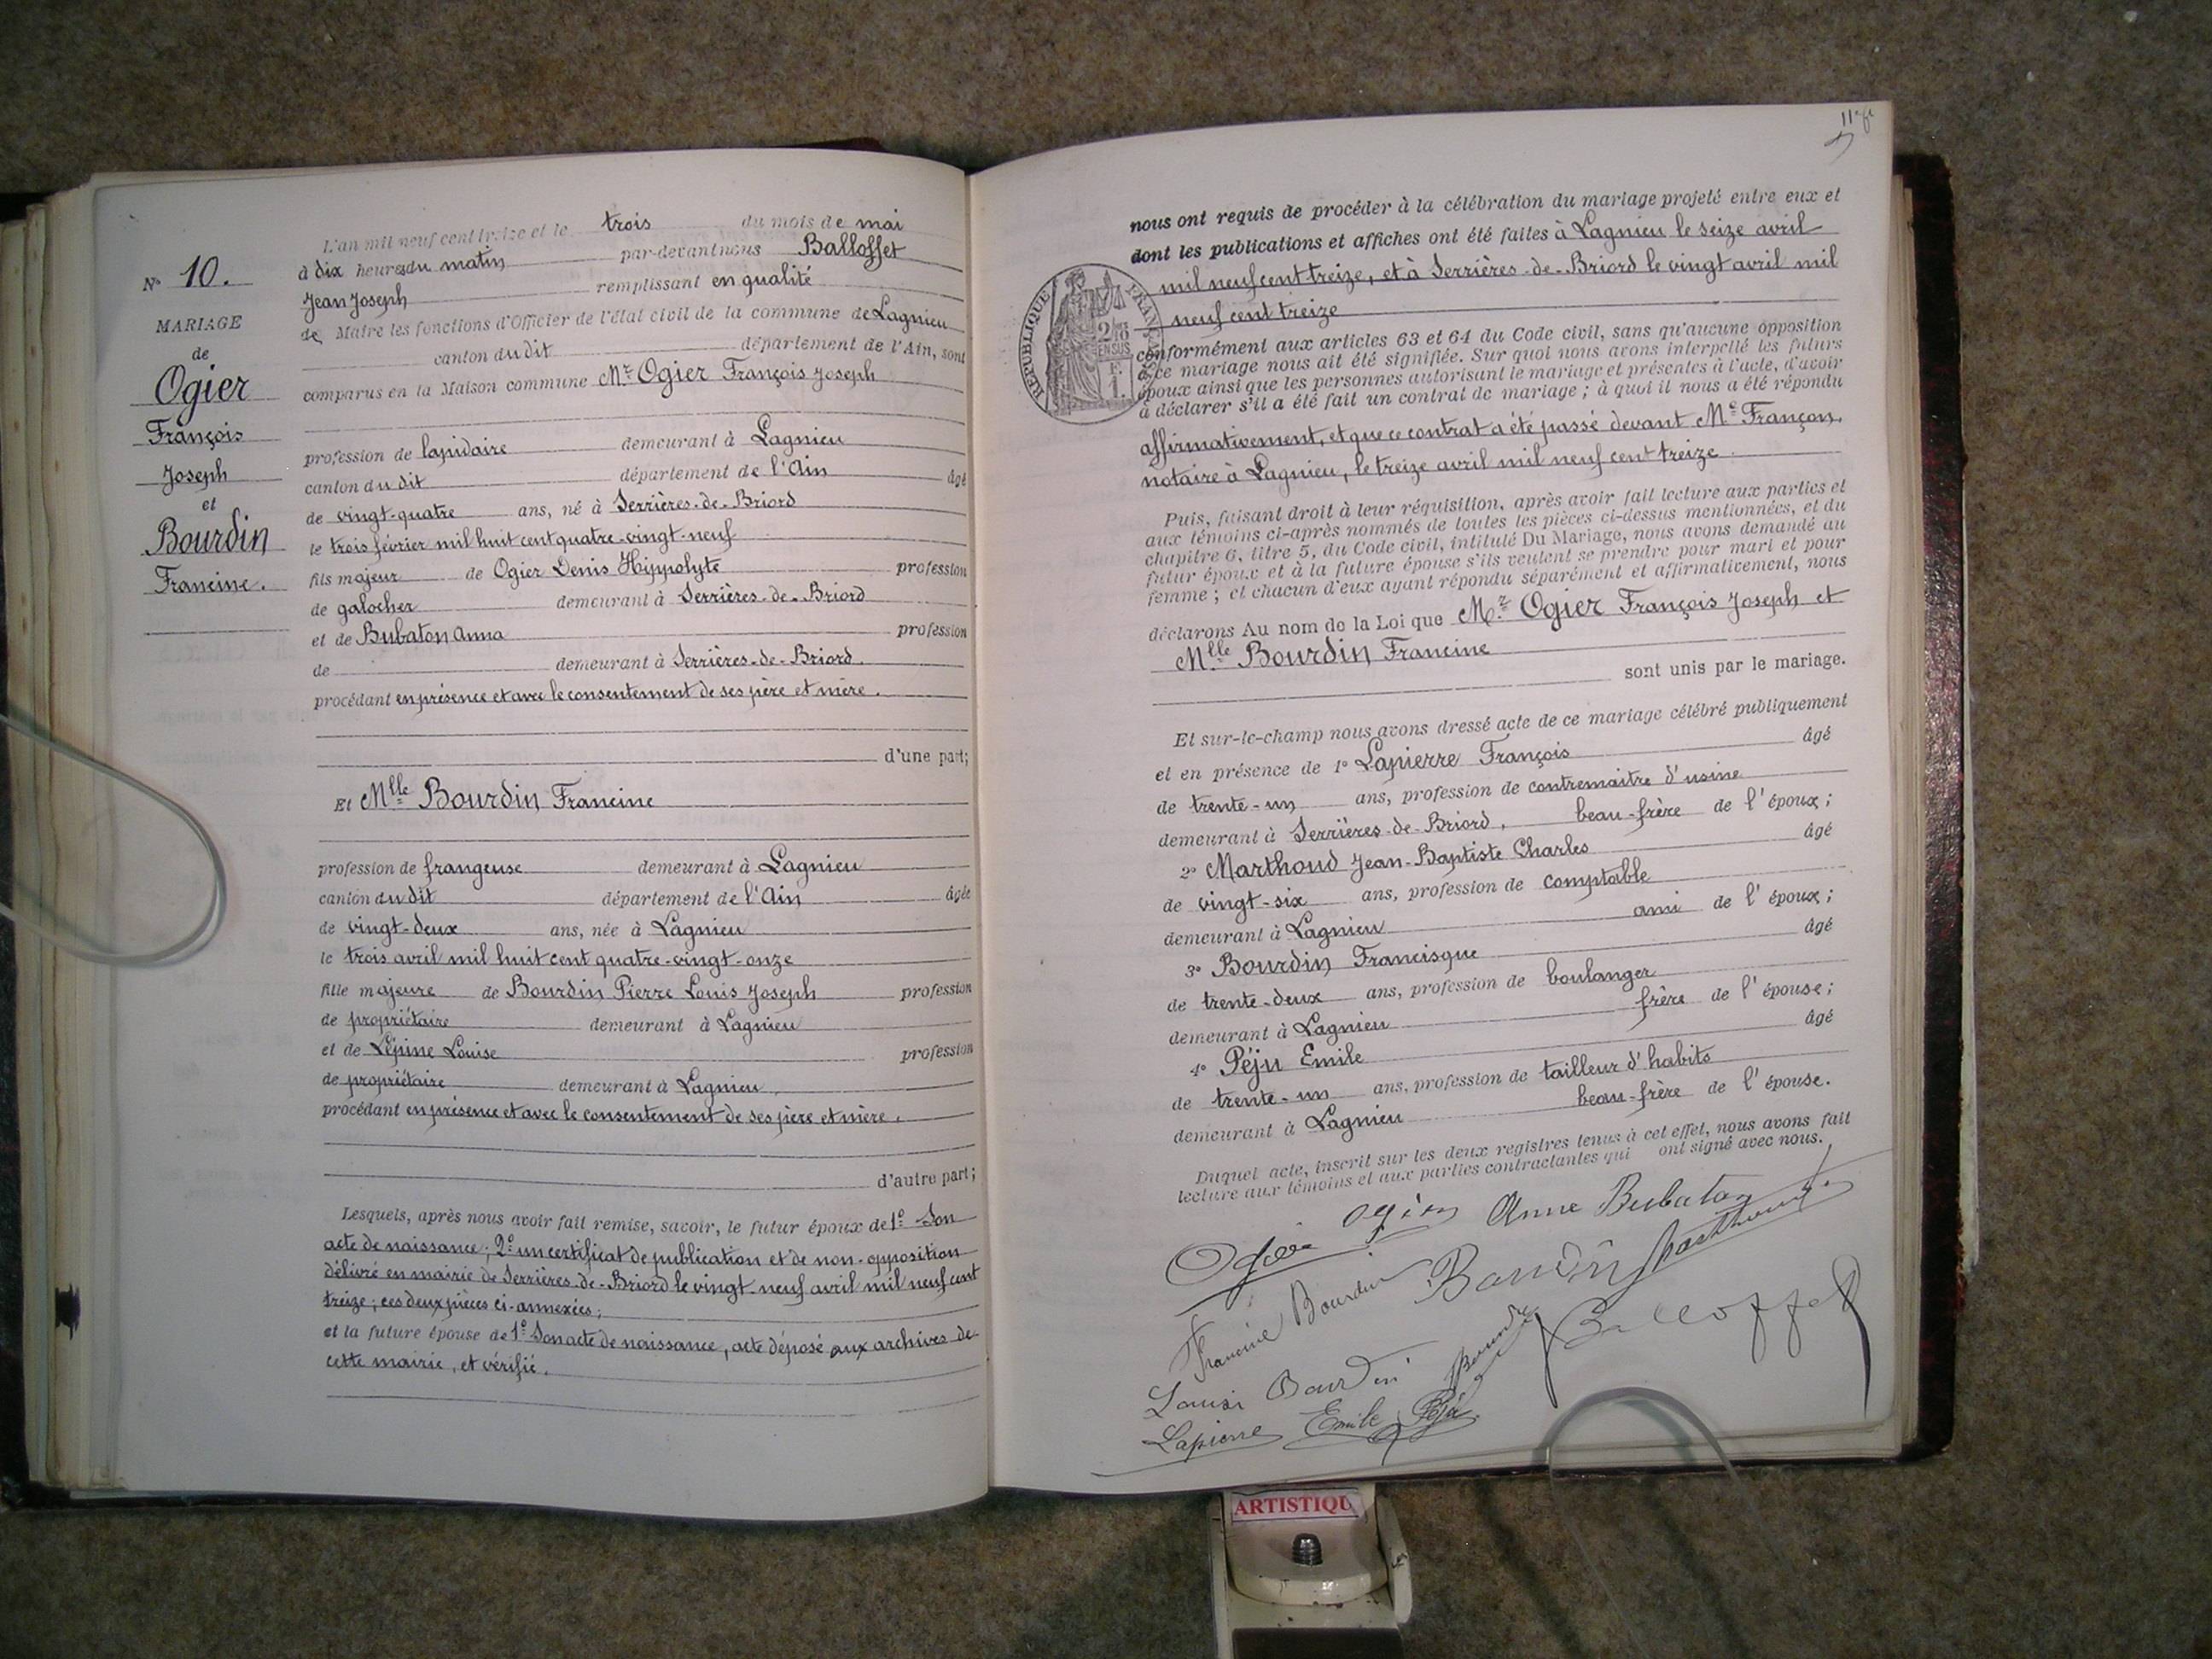 N° 10.
MARIAGE
de
Ogier
François
Joseph
et
Bourdin
Francine.
L'an mil neuf cent treize et le trois du mois de mai
à dix heures du matin par-devant nous Balloffet
Jean Joseph remplissant en qualité
de Maire les fonctions d'Officier de l'état civil de la commune de Lagnieu
canton du dit département de l'Ain, sont
comparus en la Maison commune Mr Ogier François Joseph
profession de lapidaire demeurant à Lagnieu
canton du dit département de l'Ain âgé
de vingt-quatre ans, né à Serrières-de-Briord
le trois février mil huit cent quatre-vingt-neuf
fils majeur de Ogier Denis Hippolyte profession
de galocher demeurant à Serrières-de-Briord
et de Bubaton Anna profession
de demeurant à Serrières-de-Briord.
procédant en présence et avec le consentement de ses père et mère.
d'une part;
Et Mlle Bourdin Francine
profession de frangeuse demeurant à Lagnieu
canton du dit département de l'Ain âgée
de vingt-deux ans, née à Lagnieu
le trois avril mil huit cent quatre-vingt-onze
fille majeure de Bourdin Pierre Louis Joseph profession
de propriétaire demeurant à Lagnieu
et de Lépine Louise profession
de propriétaire demeurant à Lagnieu
procédant en présence et avec le consentement de ses père et mère.
d'autre part;
Lesquels, après nous avoir fait remise, savoir, le futur époux de 1° Son
acte de naissance; 2° un certificat de publication et de non-opposition
délivré en mairie de Serrières-de-Briord le vingt-neuf avril mil neuf cent
treize; ces deux pièces ci-annexées;
et la future épouse de 1° Son acte de naissance, acte déposé aux archives de
cette mairie, et vérifié.
nous ont requis de procéder à la célébration du mariage projeté entre eux et
dont les publications et affiches ont été faites à Lagnieu le seize avril
mil neuf cent treize, et à Serrières-de-Briord le vingt avril mil
neuf cent treize
RÉPUBLIQUE FRANÇAISE
2/10
EN SUS
F.
1.
conformément aux articles 63 et 64 du Code civil, sans qu'aucune opposition
à ce mariage nous ait été signifiée. Sur quoi nous avons interpellé les futurs
époux ainsi que les personnes autorisant le mariage et présentes à l'acte, d'avoir
à déclarer s'il a été fait un contrat de mariage; à quoi il nous a été répondu
affirmativement, et que ce contrat a été passé devant Me Françon,
notaire à Lagnieu, le treize avril mil neuf cent treize.
Puis, faisant droit à leur réquisition, après avoir fait lecture aux parties et
aux témoins ci-après nommés de toutes les pièces ci-dessus mentionnées, et du
chapitre 6, titre 5, du Code civil, intitulé Du Mariage, nous avons demandé au
futur époux et à la future épouse s'ils veulent se prendre pour mari et pour
femme; et chacun d'eux ayant répondu séparément et affirmativement, nous
déclarons Au nom de la Loi que Mr Ogier François Joseph et
Mlle Bourdin Francine
sont unis par le mariage.
Et sur-le-champ nous avons dressé acte de ce mariage célébré publiquement
et en présence de 1° Lapierre François âgé
de trente-un ans, profession de contremaitre d'usine
demeurant à Serrières-de-Briord, beau-frère de l'époux;
2° Marthoud Jean-Baptiste Charles âgé
de vingt-six ans, profession de comptable
demeurant à Lagnieu ami de l'époux;
3° Bourdin Francisque âgé
de trente-deux ans, profession de boulanger
demeurant à Lagnieu frère de l'épouse;
4° Péju Emile âgé
de trente-un ans, profession de tailleur d'habits
demeurant à Lagnieu beau-frère de l'épouse.
Duquel acte, inscrit sur les deux registres tenus à cet effet, nous avons fait
lecture aux témoins et aux parties contractantes qui ont signé avec nous.
Ogier ogier Anne Bubaton
Francine Bourdin Bourdin Marthoud
Louise Bourdin Balloffet
Lapierre Emile Péju
ARTISTIQU